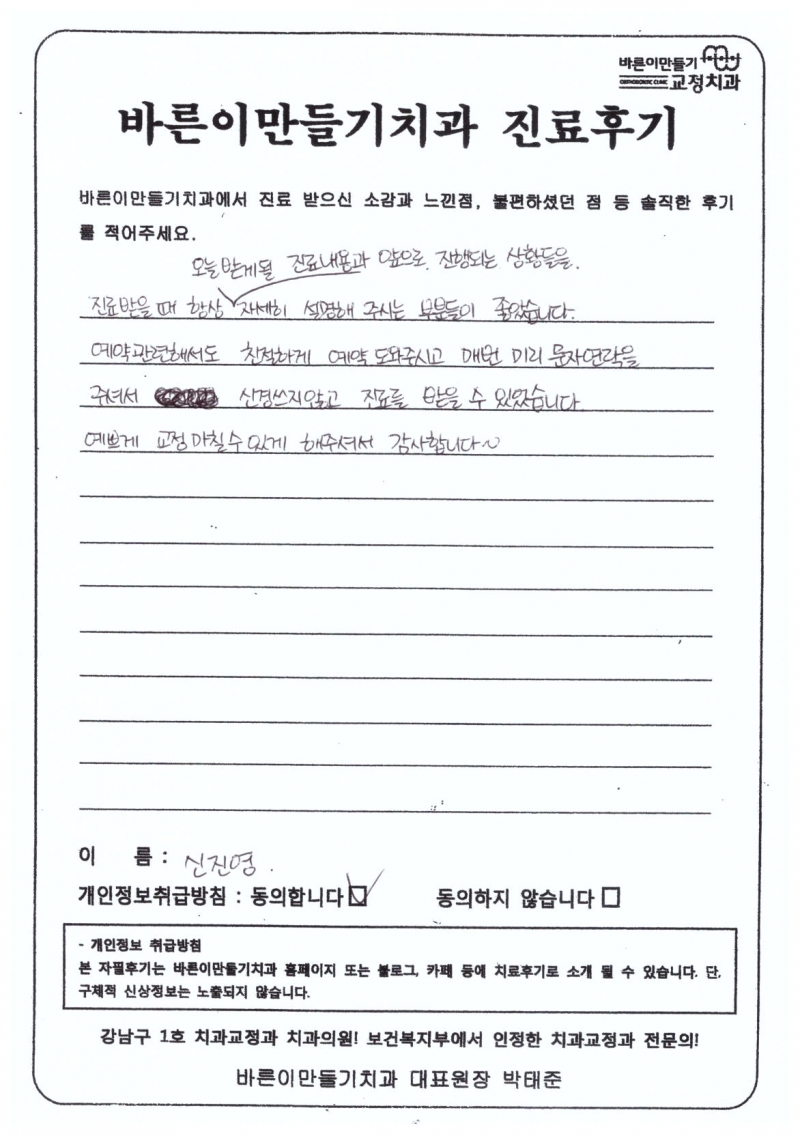 바른이만들기
ORTHODONTIC CLINIC 교정치과
바른이만들기치과 진료후기
바른이만들기치과에서 진료 받으신 소감과 느낀점, 불편하셨던 점 등 솔직한 후기
를 적어주세요.
오늘 받게될 진료내용과 앞으로 진행되는 상황들을.
진료받을 때 항상 자세히 설명해 주시는 부분들이 좋았습니다.
예약관련해서도 친절하게 예약 도와주시고 매번 미리 문자연락을
주셔서 신경쓰지않고 진료를 받을 수 있었습니다.
예쁘게 교정 마칠수있게 해주셔서 감사합니다~
이 름 : 신진영.
개인정보취급방침 : 동의합니다 ☑ 동의하지 않습니다 □
- 개인정보 취급방침
본 자필후기는 바른이만들기치과 홈페이지 또는 블로그, 카페 등에 치료후기로 소개 될 수 있습니다. 단,
구체적 신상정보는 노출되지 않습니다.
강남구 1호 치과교정과 치과의원! 보건복지부에서 인정한 치과교정과 전문의!
바른이만들기치과 대표원장 박태준